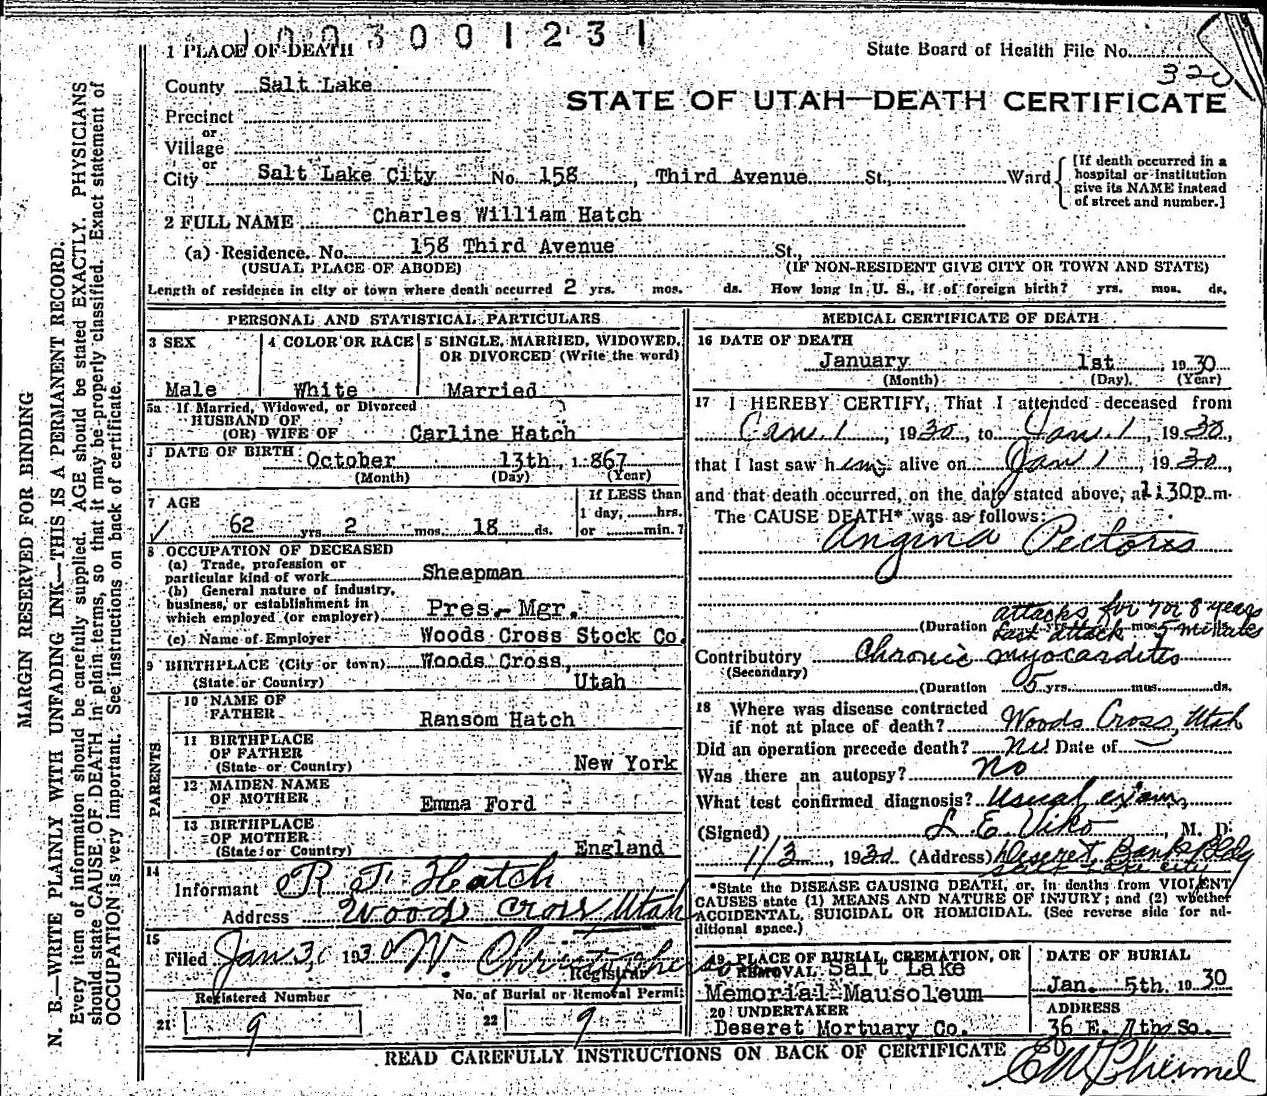 1003001231
1 PLACE OF DEATH
State Board of Health File No.
County Salt Lake
STATE OF UTAH—DEATH CERTIFICATE
Precinct
or
Village
or
City Salt Lake City No. 158, Third Avenue St., Ward
[If death occurred in a hospital or institution give its NAME instead of street and number.]
2 FULL NAME Charles William Hatch
(a) Residence, No. 158 Third Avenue St.,
(USUAL PLACE OF ABODE) (IF NON-RESIDENT GIVE CITY OR TOWN AND STATE)
Length of residence in city or town where death occurred 2 yrs. mos. ds. How long in U. S., if of foreign birth? yrs. mos. ds.
PERSONAL AND STATISTICAL PARTICULARS
3 SEX
Male
4 COLOR OR RACE
White
5 SINGLE, MARRIED, WIDOWED,
OR DIVORCED (Write the word)
Married
5a If Married, Widowed, or Divorced
HUSBAND OF
(OR) WIFE OF Carline Hatch
DATE OF BIRTH October 13th, 1867
(Month) (Day) (Year)
7 AGE
62 yrs. 2 mos. 18 ds.
If LESS than
1 day, hrs.
or min.?
8 OCCUPATION OF DECEASED
(a) Trade, profession or
particular kind of work Sheepman
(b) General nature of industry,
business, or establishment in
which employed (or employer) Pres.- Mgr.
(c) Name of Employer Woods Cross Stock Co.
9 BIRTHPLACE (City or town) Woods Cross,
(State or Country) Utah
PARENTS
10 NAME OF
FATHER Ransom Hatch
11 BIRTHPLACE
OF FATHER
(State or Country) New York
12 MAIDEN NAME
OF MOTHER Emma Ford
13 BIRTHPLACE
OF MOTHER
(State or Country) England
14
Informant R T Hatch
Address Woods Cross, Utah
15
Filed Jan 3, 1930
Registrar
Registered Number
No. of Burial or Removal Permit
21 9
22 9
MEDICAL CERTIFICATE OF DEATH
16 DATE OF DEATH
January 1st, 1930
(Month) (Day) (Year)
17 I HEREBY CERTIFY, That I attended deceased from
Jan. 1, 1930, to Jan. 1, 1930,
that I last saw him alive on Jan 1, 1930
and that death occurred, on the date stated above, at 1:30p.m.
The CAUSE DEATH* was as follows:
Angina Pectoris
attacks for 7 or 8 years
(Duration yrs. mos.
last attack 5 minutes
Contributory Chronic myocarditis
(Secondary)
(Duration 5 yrs. mos. ds.
18 Where was disease contracted
if not at place of death? Woods Cross, Utah
Did an operation precede death? no Date of
Was there an autopsy? No
What test confirmed diagnosis? Usual exam.
(Signed) L E Viko, M. D.
1/3, 1930 (Address) Deseret Bank Bldg
Salt Lake City
*State the DISEASE CAUSING DEATH, or, in deaths from VIOLENT
CAUSES state (1) MEANS AND NATURE OF INJURY; and (2) whether
ACCIDENTAL, SUICIDAL OR HOMICIDAL. (See reverse side for ad-
ditional space.)
19 PLACE OF BURIAL, CREMATION, OR
REMOVAL Salt Lake
Memorial Mausoleum
DATE OF BURIAL
Jan. 5th, 1930
20 UNDERTAKER
Deseret Mortuary Co.
ADDRESS
36 E. 7th So.
READ CAREFULLY INSTRUCTIONS ON BACK OF CERTIFICATE
MARGIN RESERVED FOR BINDING
N. B.—WRITE PLAINLY WITH UNFADING INK—THIS IS A PERMANENT RECORD.
Every item of information should be carefully supplied. AGE should be stated EXACTLY. PHYSICIANS
should state CAUSE OF DEATH in plain terms, so that it may be properly classified. Exact statement of
OCCUPATION is very important. See instructions on back of certificate.